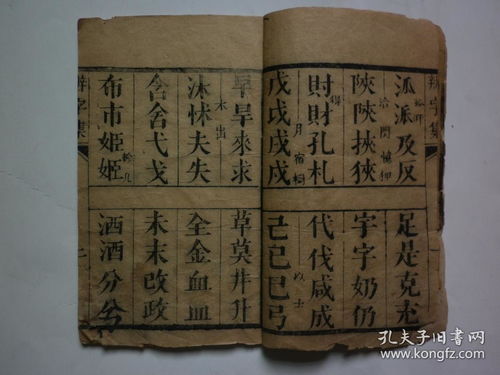 辨字集
泒派及反
陜陝挾狹
財財孔札
戊戉戌戍
足是克充
字字奶仍
代伐咸成
己已巳弓
早旱來求
沐休夫失
含舍弋戈
布市姫姬
草莫井升
全金血皿
未末改政
洒酒分兮
辨字集
孔夫子旧书网
www.kongfz.com